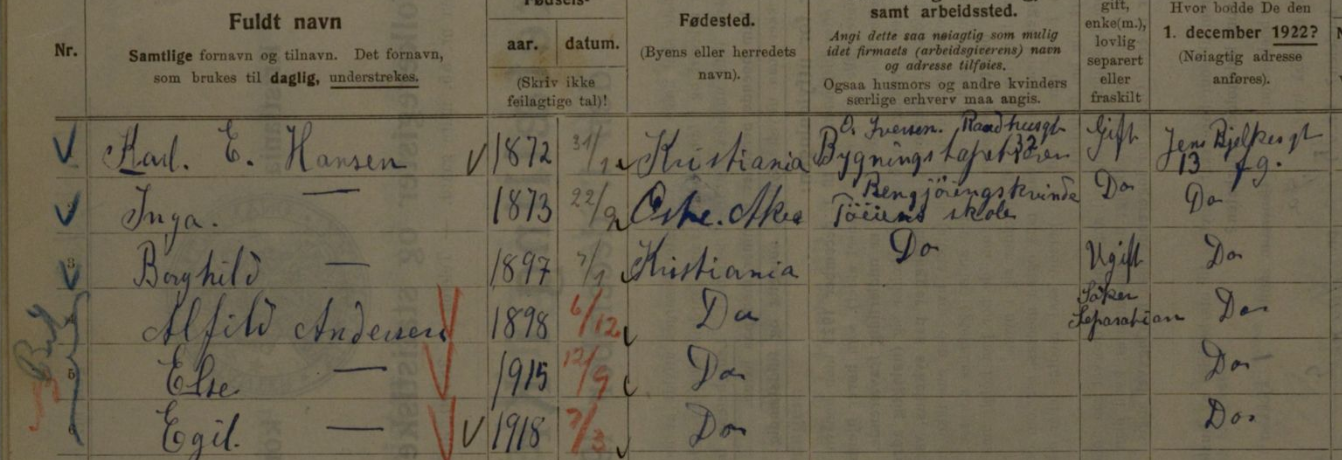 Nr.
Fuldt navn
Samtlige fornavn og tilnavn. Det fornavn,
som brukes til daglig, understrekes.
aar. datum.
(Skriv ikke
feilagtige tal)!
Fødested.
(Byens eller herredets
navn).
samt arbeidssted.
Angi dette saa nøiagtig som mulig
idet firmaets (arbeidsgiverens) navn
og adresse tilføies.
Ogsaa husmors og andre kvinders
særlige erhverv maa angis.
gift,
enke(m.),
lovlig
separert
eller
fraskilt
Hvor bodde De den
1. december 1922?
(Nøiagtig adresse
anføres).
Karl. E. Hansen 1872 31/1 Kristiania O. Iversen. Raadhusgt 32 Bygningstapetseren Gift Jens Bjelkesgt 13
Inga. — 1873 22/9 Østre. Aker Rengjöringskvinde Töiens skole Do Do
3 Borghild — 1897 7/1 Kristiania Do Ugift Do
Alfild Andersen 1898 6/12 Do Söker Separation Do
5 Else — 1915 12/9 Do Do
Egil. — 1918 7/3 Do Do